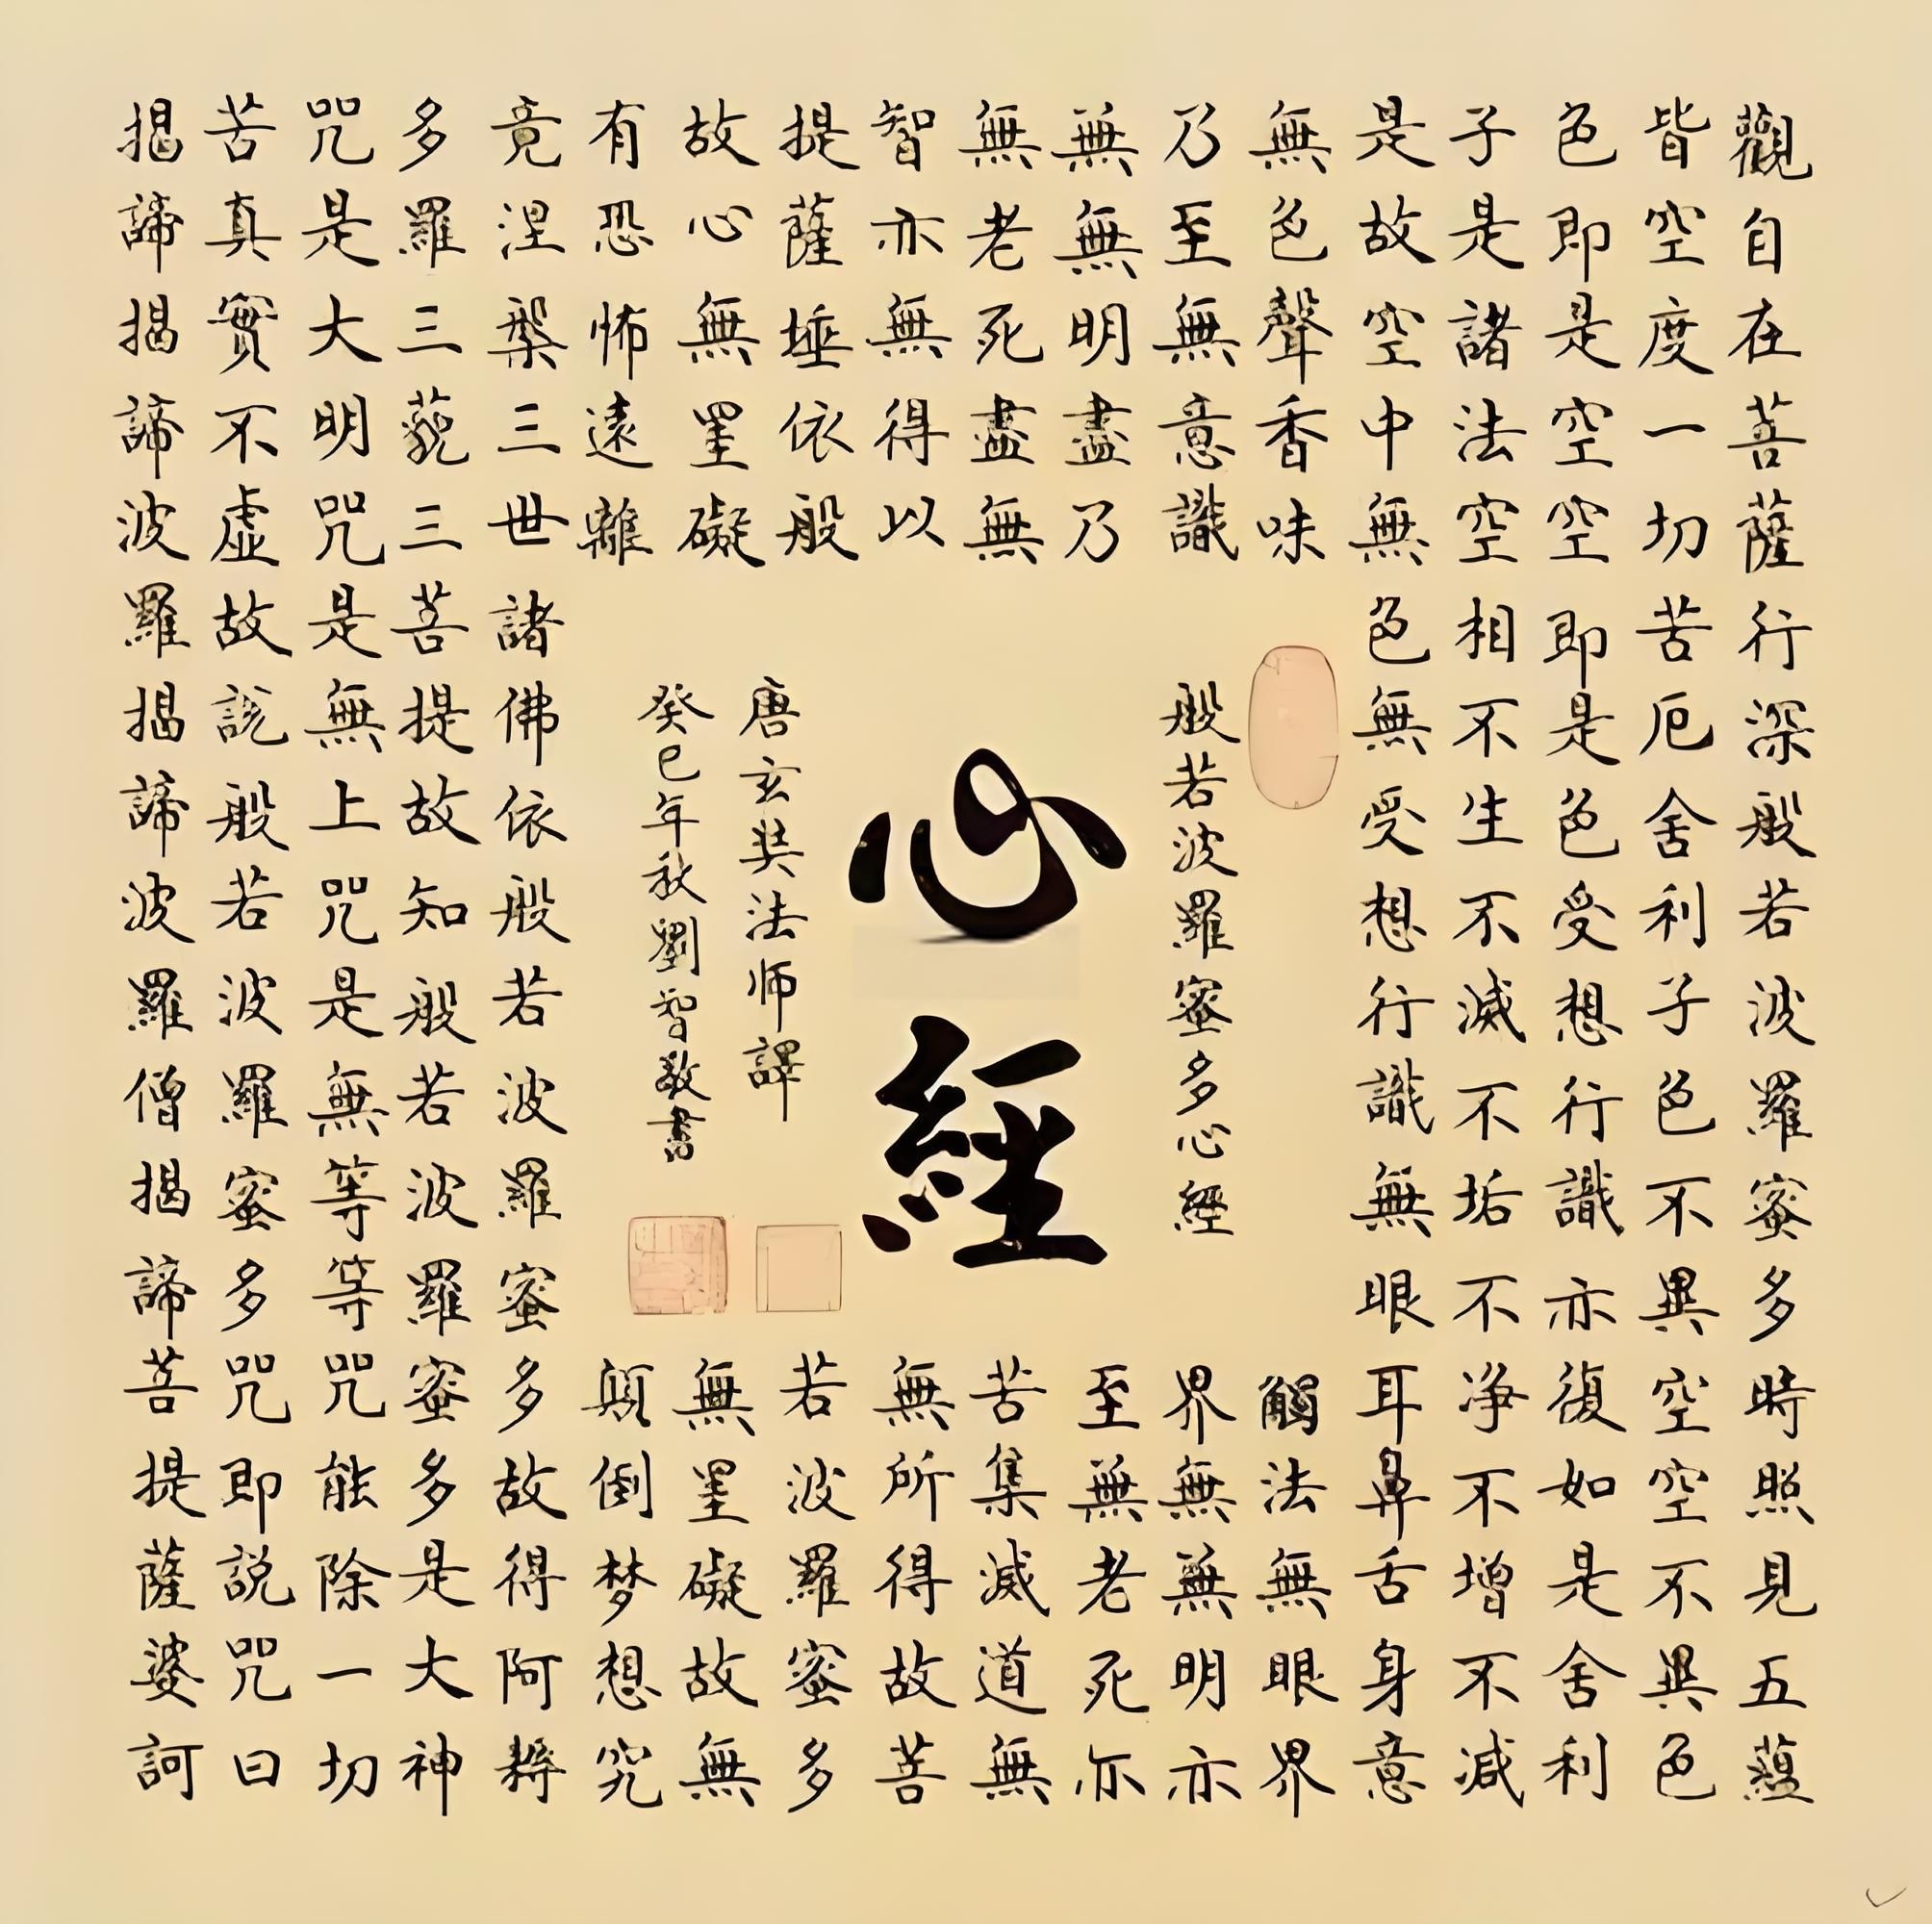 觀自在菩薩行深般若波羅蜜多時照見五蘊
皆空度一切苦厄舍利子色不異空空不異色
色即是空空即是色受想行識亦復如是舍利
子是諸法空相不生不滅不垢不净不增不減
是故空中無色無受想行識無眼耳鼻舌身意
無色聲香味觸法無眼界
乃至無意識界無無明亦
無無明盡乃至無老死亦
無老死盡無苦集滅道無
智亦無得以無所得故菩
提薩埵依般若波羅蜜多
故心無罣礙無罣礙故無
有恐怖遠離顛倒梦想究
竟涅槃三世諸佛依般若波羅蜜多故得阿耨
多羅三藐三菩提故知般若波羅蜜多是大神
咒是大明咒是無上咒是無等等咒能除一切
苦真實不虛故説般若波羅蜜多咒即説咒曰
揭諦揭諦波羅揭諦波羅僧揭諦菩提薩婆訶
般若波羅蜜多心經
心經
唐玄奘法师譯
癸巳年秋劉智敬書